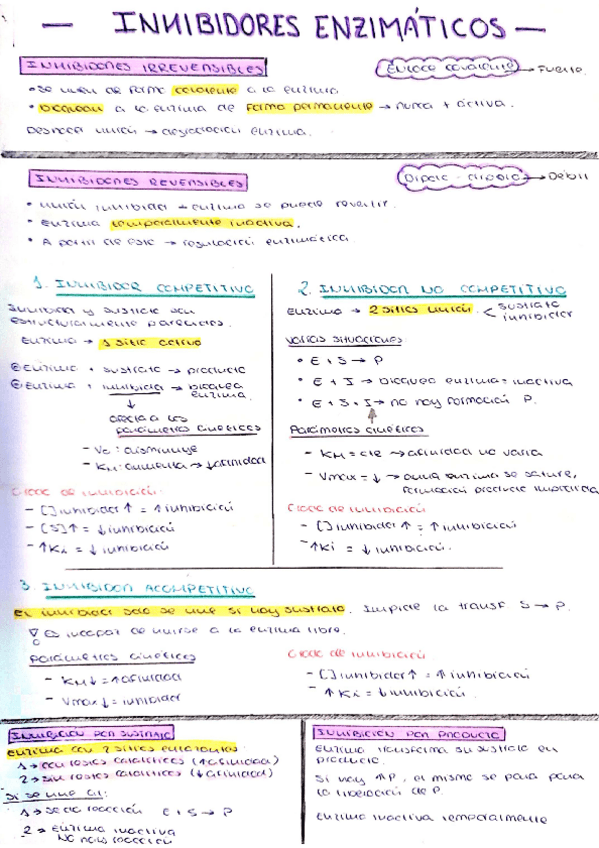 — INHIBIDORES ENZIMÁTICOS —
INHIBIDORES IRREVERSIBLES
Enlace covalente → Fuerte.
• Se unen de forma covalente a la enzima
• Bloquean a la enzima de forma permanente → nunca + activa.
Deshacer unión → degradación enzima.
INHIBIDORES REVERSIBLES
Dipolo - dipolo → Débil
• Unión inhibidor - enzima se puede revertir.
• Enzima temporalmente inactiva.
• A partir de este → regulación enzimática.
1. INHIBIDOR COMPETITIVO
Inhibidor y sustrato son
estructuralmente parecidos.
Enzima → 1 sitio activo
Enzima + sustrato → producto
Enzima + inhibidor → bloquea
enzima.
↓
afecta a los
parámetros cinéticos
- Vo: disminuye
- KM: aumenta → ↓ afinidad
Grado de inhibición:
- [] inhibidor ↑ = ↑ inhibición
- [S] ↑ = ↓ inhibición
- ↑ Ki = ↓ inhibición
2. INHIBIDOR NO COMPETITIVO
Enzima → 2 sitios unión < sustrato
inhibidor
Varias situaciones
• E + S → P
• E + I → bloquea enzima = inactiva
• E + S + I → no hay formación P.
Parámetros cinéticos
- KM = cte → afinidad no varía
- Vmax = ↓ → enzima se sature,
formación producto
Grado de inhibición
- [] inhibidor ↑ = ↑ inhibición
- ↑ Ki = ↓ inhibición.
3. INHIBIDOR ACOMPETITIVO
El inhibidor solo se une si hay sustrato. Impide la transf S → P.
Es incapaz de unirse a la enzima libre.
Parámetros cinéticos
- KM ↓ = ↑ afinidad
- Vmax ↓ = inhibidor
Grado de inhibición
- [] inhibidor ↑ = ↑ inhibición
- ↑ Ki = ↓ inhibición.
INHIBICIÓN POR SUSTRATO
Enzima con 2 sitios
1 → con restos catalíticos (↑ afinidad)
2 → sin restos catalíticos (↓ afinidad)
Si se une al:
1 → se da reacción E + S → P
2 → Enzima inactiva
No hay reacción
INHIBICIÓN POR PRODUCTO
Enzima transforma su sustrato en
producto.
Si hay ↑ P, el mismo se para para
la liberación de P.
Enzima inactiva temporalmente